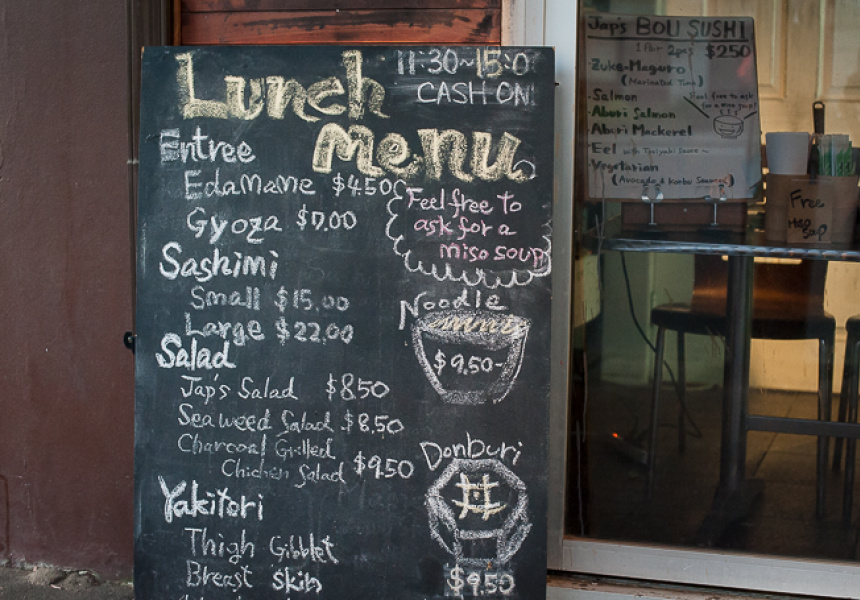 Lunch
Menu
11:30~15:0
CASH ON
Entree
Edamame $4.50
Gyoza $7.00
Feel free to
ask for a
miso soup
Sashimi
Small $15.00
Large $22.00
Noodle
$9.50-
Salad
Jap's Salad $8.50
Seaweed Salad $8.50
Charcoal Grilled
Chicken Salad $9.50
Donburi
井
$9.50
Yakitori
Thigh Gibblet
Breast Skin
Jap's BOU SUSHI
1 for 2pcs $2.50
Zuke-Maguro
(Marinated Tuna)
Salmon
Aburi Salmon
Aburi Mackerel
Eel with Teriyaki Sauce~
Vegetarian
(Avocado & Kombu Seaweed)
Feel free to ask
for a miso soup!
Free